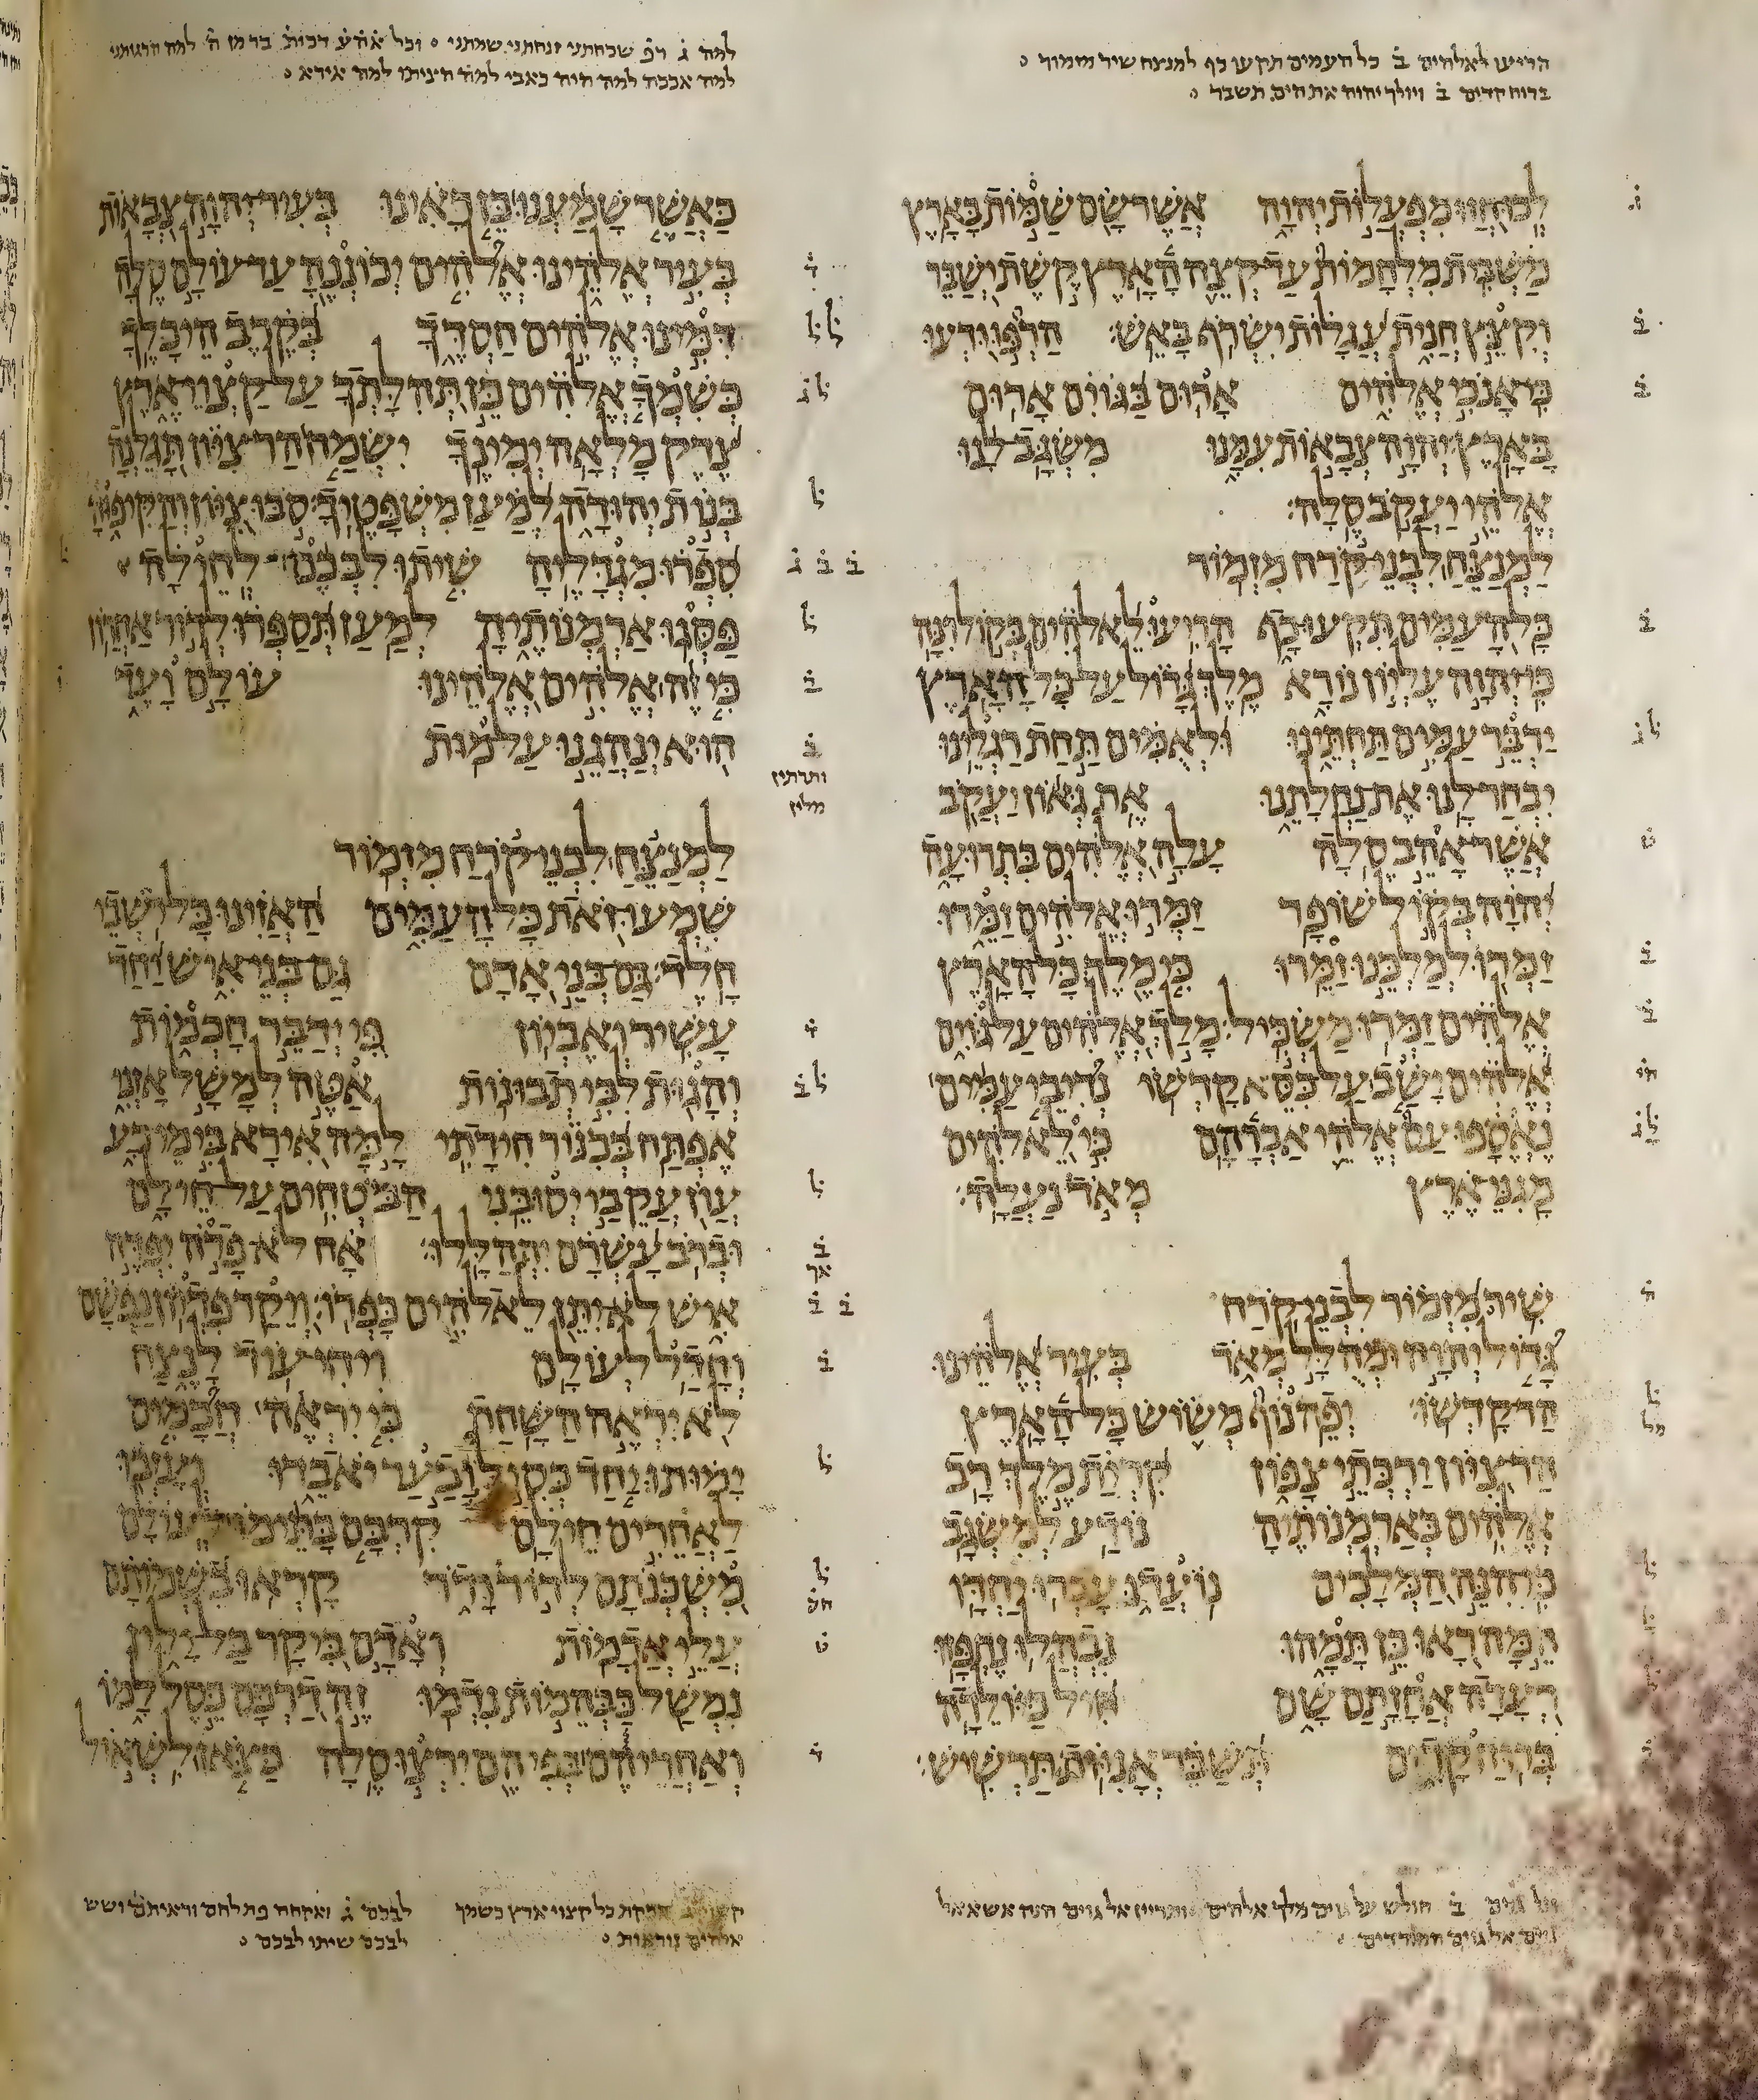 הריעו לאלהים ב̇ כל העמים תקעו כף למנצח שיר מזמור
ברוח קדים ב̇ ויולך יהוה את הים תשבר
לכו חזו מפעלות יהוה אשר שם שמות בארץ
משבית מלחמות עד קצה הארץ קשת ישבר
וקצץ חנית עגלות ישרף באש׃ הרפו ודעו
כי אנכי אלהים ארום בגוים ארום
בארץ׃ יהוה צבאות עמנו משגב לנו
אלהי יעקב סלה׃
למנצח לבני קרח מזמור
כל העמים תקעו כף הריעו לאלהים בקול רנה
כי יהוה עליון נורא מלך גדול על כל הארץ
ידבר עמים תחתינו ולאמים תחת רגלינו
יבחר לנו את נחלתנו את גאון יעקב
אשר אהב סלה עלה אלהים בתרועה
יהוה בקול שופר זמרו אלהים זמרו
זמרו למלכנו זמרו כי מלך כל הארץ
אלהים זמרו משכיל׃ מלך אלהים על גוים
אלהים ישב על כסא קדשו נדיבי עמים
נאספו עם אלהי אברהם כי לאלהים
מגני ארץ מאד נעלה׃
שיר מזמור לבני קרח
גדול יהוה ומהלל מאד בעיר אלהינו
הר קדשו׃ יפה נוף משוש כל הארץ
הר ציון ירכתי צפון קרית מלך רב
אלהים בארמנותיה נודע למשגב
כי הנה המלכים נועדו עברו יחדו
המה ראו כן תמהו נבהלו נחפזו
רעדה אחזתם שם חיל כיולדה
ברוח קדים תשבר אניות תרשיש׃
גוים ב̇ חולש על גוים מלך אלהים ותריין אל גוים הנה אשא אל
גוים אל גוים המורדים
למה ג̇ רפ̇ שכחתני זנחתני שמתני וכל אתנ̇ח דכות̇ בר מן ה̇ למה הרגתני
למה אבכה למה היה כאבי למה הציתו למה אירא
כאשר שמענו כן ראינו בעיר יהוה צבאות
בעיר אלהינו אלהים יכוננה עד עולם סלה
דמינו אלהים חסדך בקרב היכלך
כשמך אלהים כן תהלתך על קצוי ארץ
צדק מלאה ימינך ישמח הר ציון תגלנה
בנות יהודה למען משפטיך׃ סבו ציון והקיפוה
ספרו מגדליה שיתו לבכם לחילה
פסגו ארמנותיה למען תספרו לדור אחרון
כי זה אלהים אלהינו עולם ועד
הוא ינהגנו על מות
למנצח לבני קרח מזמור
שמעו זאת כל העמים האזינו כל ישבי
חלד׃ גם בני אדם גם בני איש יחד
עשיר ואביון פי ידבר חכמות
והגות לבי תבונות אטה למשל אזני
אפתח בכנור חידתי למה אירא בימי רע
עון עקבי יסובני הבטחים על חילם
וברב עשרם יתהללו׃ אח לא פדה יפדה
איש לא יתן לאלהים כפרו׃ ויקר פדיון נפשם
וחדל לעולם ויחי עוד לנצח
לא יראה השחת כי יראה חכמים
ימותו יחד כסיל ובער יאבדו ועזבו
לאחרים חילם קרבם בתימו לעולם
משכנתם לדור ודר קראו בשמותם
עלי אדמות ואדם ביקר בל ילין
נמשל כבהמות נדמו זה דרכם כסל למו
ואחריהם בפיהם ירצו סלה כצאן לשאול
ותרתין
מלין
כל קצוי ארץ כשמך לבכם ג̇ ואקחה פת לחם וראיתם ושש
אלהים נוראות לבכם שיתו לבכם